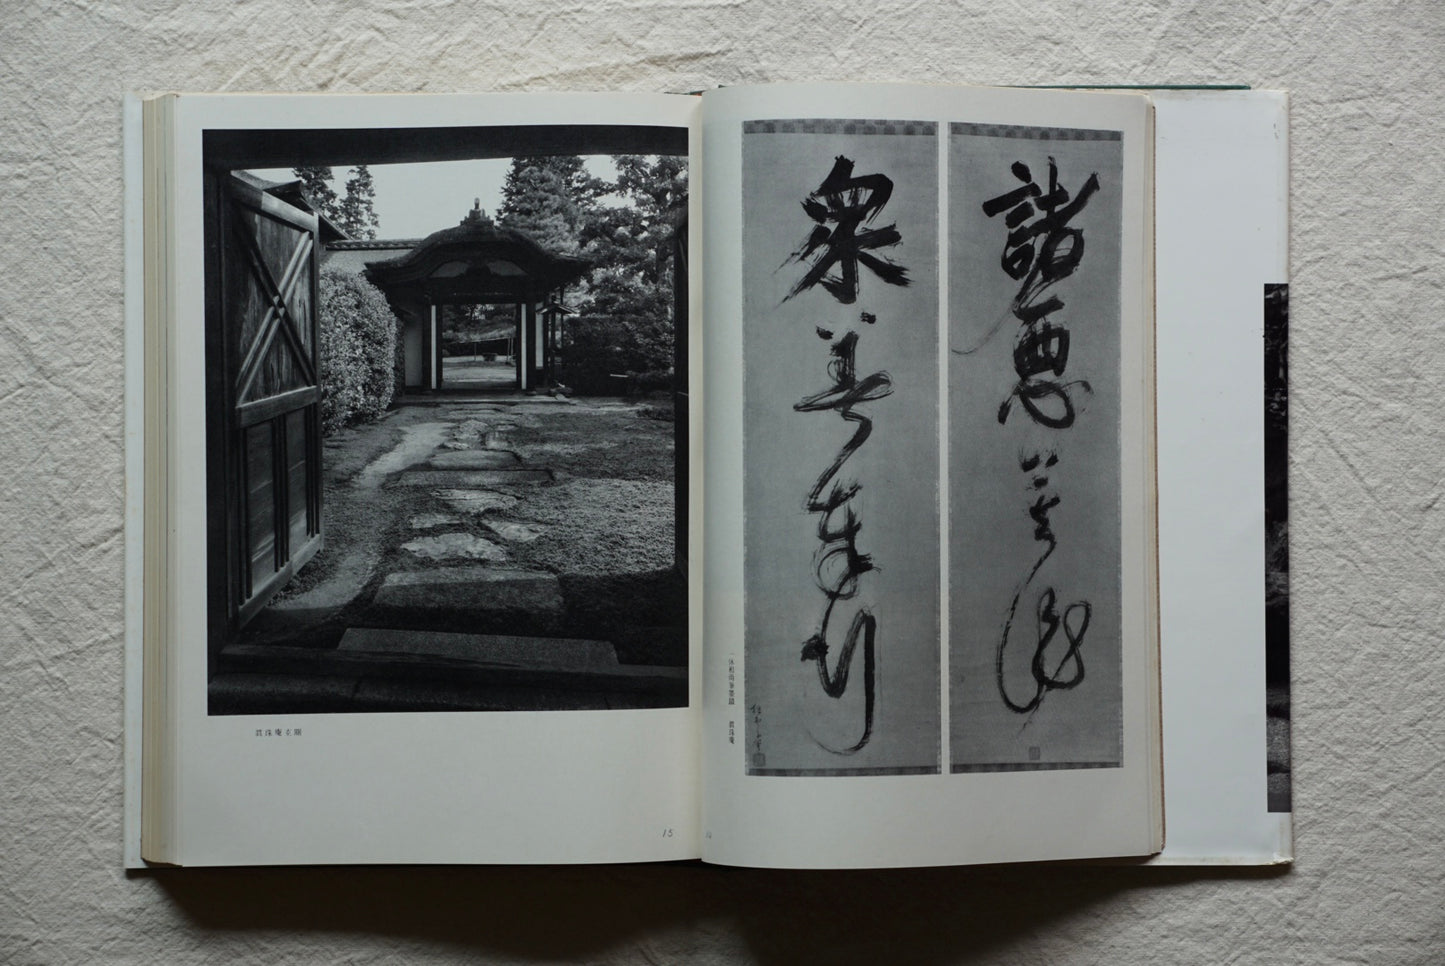 諸悪莫作
衆善奉行
一休和尚筆墨蹟 眞珠庵
眞珠庵玄關
15